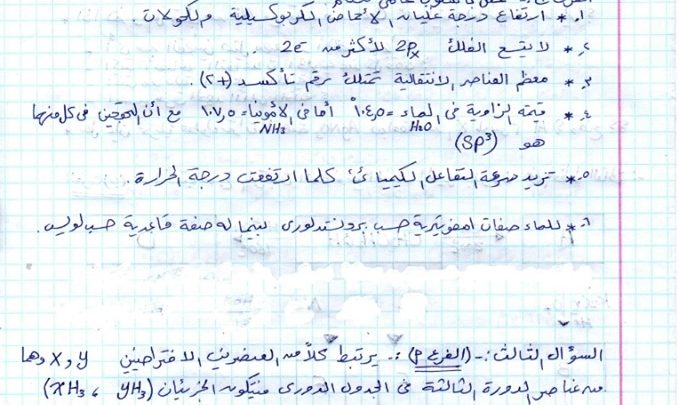 ١. * ارتفاع درجة غليان الأحماض الكربوكسيلية والكحولات.
٢. * لا يتسع الفلك 2Px لأكثر من 2e
٣. * معظم العناصر الانتقالية تمتلك رقم تأكسد (+٢).
٤. * قيمة الزاوية في الماء = ١٠٤,٥° أما في الأمونيا = ١٠٧,٥ مع أن التهجين في كل منهما
H2O NH3
هو (SP³)
٥. * تزيد سرعة التفاعل الكيميائي كلما ارتفعت درجة الحرارة.
٦. * للماء صفات امفوتيرية حسب برونستد لوري بينما له صفة قاعدية حسب لويس.
السؤال الثالث :- (الفرع P) :- يرتبط كلاً من العنصرين الافتراضيين y و x وهما
من عناصر الدورة الثالثة في الجدول الدوري فيتكون الجزيئان (xH3 ، yH3)